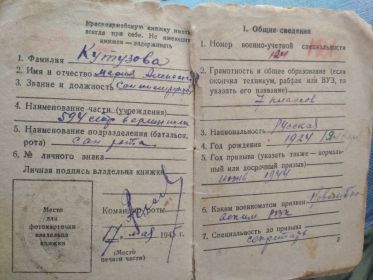 Красноармейскую книжку иметь
всегда при себе. Не имеющих
книжек — задерживать
1. Фамилия Кутузова
2. Имя и отчество Мария
3. Звание и должность Санинструктор
4. Наименование части (учреждения)
594
5. Наименование подразделения (батальон,
рота) сан рота
6. № личного знака
Личная подпись владельца книжки
Место
для
фотокарточки
владельца
книжки
Командир роты
17 мая 194
(Место
печати части)
I. Общие сведения
1. Номер военно-учетной специальности
124
2. Грамотность и общее образование (если
окончил техникум, рабфак или ВУЗ, то
указать его название)
7 классов
3. Национальность Русская
4. Год рождения 1924
5. Год призыва (указать также — нормаль-
ный или досрочный призыв)
1944
6. Каким военкоматом призван
7. Специальность до призыва
секретарь
2